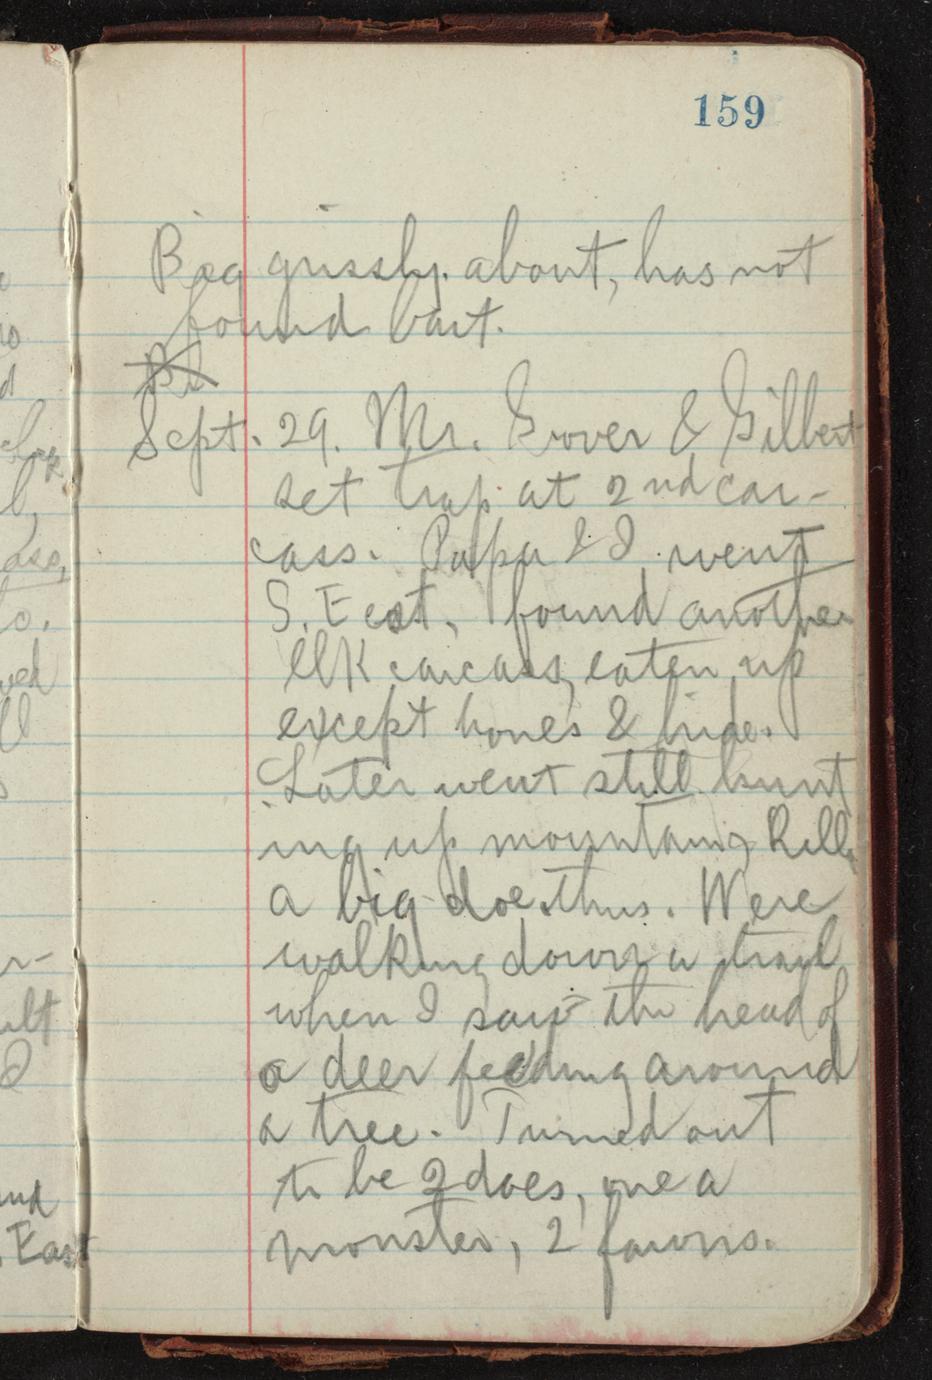 159
Big grissly about, has not
found bait.
Sept. 29. Mr. Grover & Gilbert
set trap at 2nd car-
cass. Papa & I went
S. East, found another
elk carcass, eaten up
except bones & hide.
Later went still hunt
ing up mountain, Kill
a big doe thus. Were
walking down a trail
when I saw the head of
a deer feeding around
a tree. Turned out
to be 2 does, one a
monster, 2 fawns.
r-
und
East